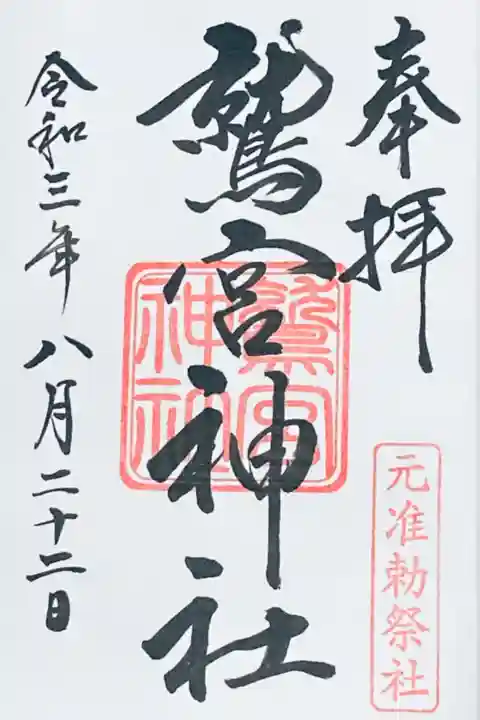 奉拝
元准勅祭社
鷲宮神社
鷲宮
神社
令和三年八月二十二日